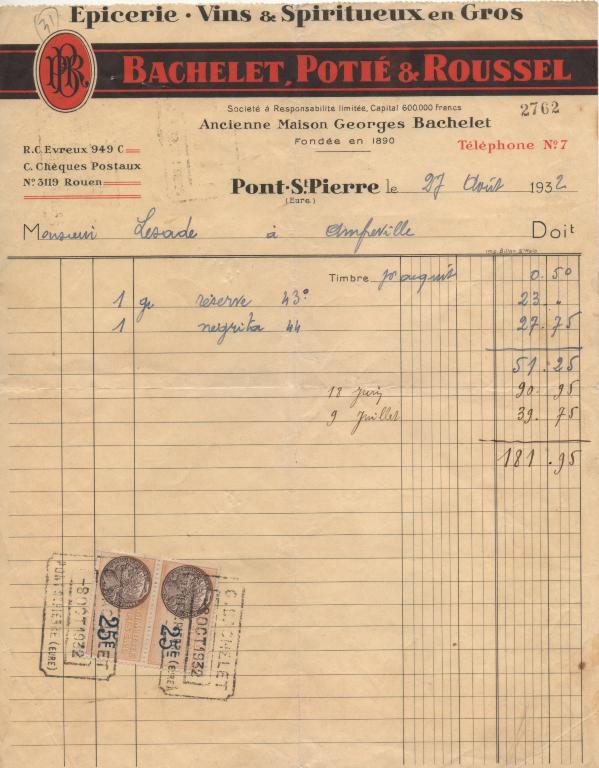 Epicerie · Vins & Spiritueux en Gros
31
BACHELET, POTIÉ & ROUSSEL
Société à Responsabilité limitée, Capital 600.000 Francs
2762
Ancienne Maison Georges Bachelet
R.C. Evreux 949 C
Fondée en 1890
Téléphone No 7
C. Chèques Postaux
No 3119 Rouen
Pont-St-Pierre le 27 Août 1932
(Eure)
Monsieur Lesade à Amfreville Doit
Timbre 0.50
1 réserve 43° 23 "
1 negrita 44 27.75
51.25
18 Juin 90.95
9 Juillet 39.75
181.95
PONT-ST-PIERRE (EURE)
-8 OCT 1932
25c
25c
8 OCT 1932
(EURE)